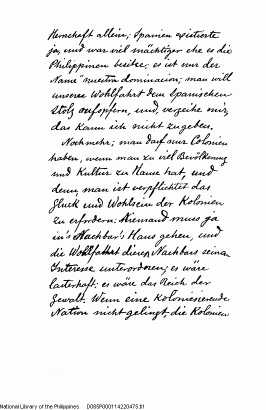 Herrschaft allein; Spanien existierte
ja, und war viel mächtiger ehe es die
Philippinen besitze; es ist nur der
Name "nuestra dominacion; man will
unsere Wohlfahrt dem Spanischen
Stolz aufopfern, und, verzeihe mir,
das kann ich nicht zugeben.
Noch mehr; man darf nur Colonien
haben, wenn man zu viel Bevölkerung
und Kultur zu Hause hat, und
denn, man ist verpflichtet das
Glück und Wohlsein der Kolonien
zu erfordern. Niemand muss ja
in's Nachbar's Haus gehen, und
die Wohlfahrt dieses Nachbars seinem
Interesse unterordnen; es wäre
lasterhaft; es wäre das Reich der
Gewalt. Wenn eine kolonisierende
Nation nicht gelingt, die Kolonien
National Library of the Philippines D085P000114220475.tif